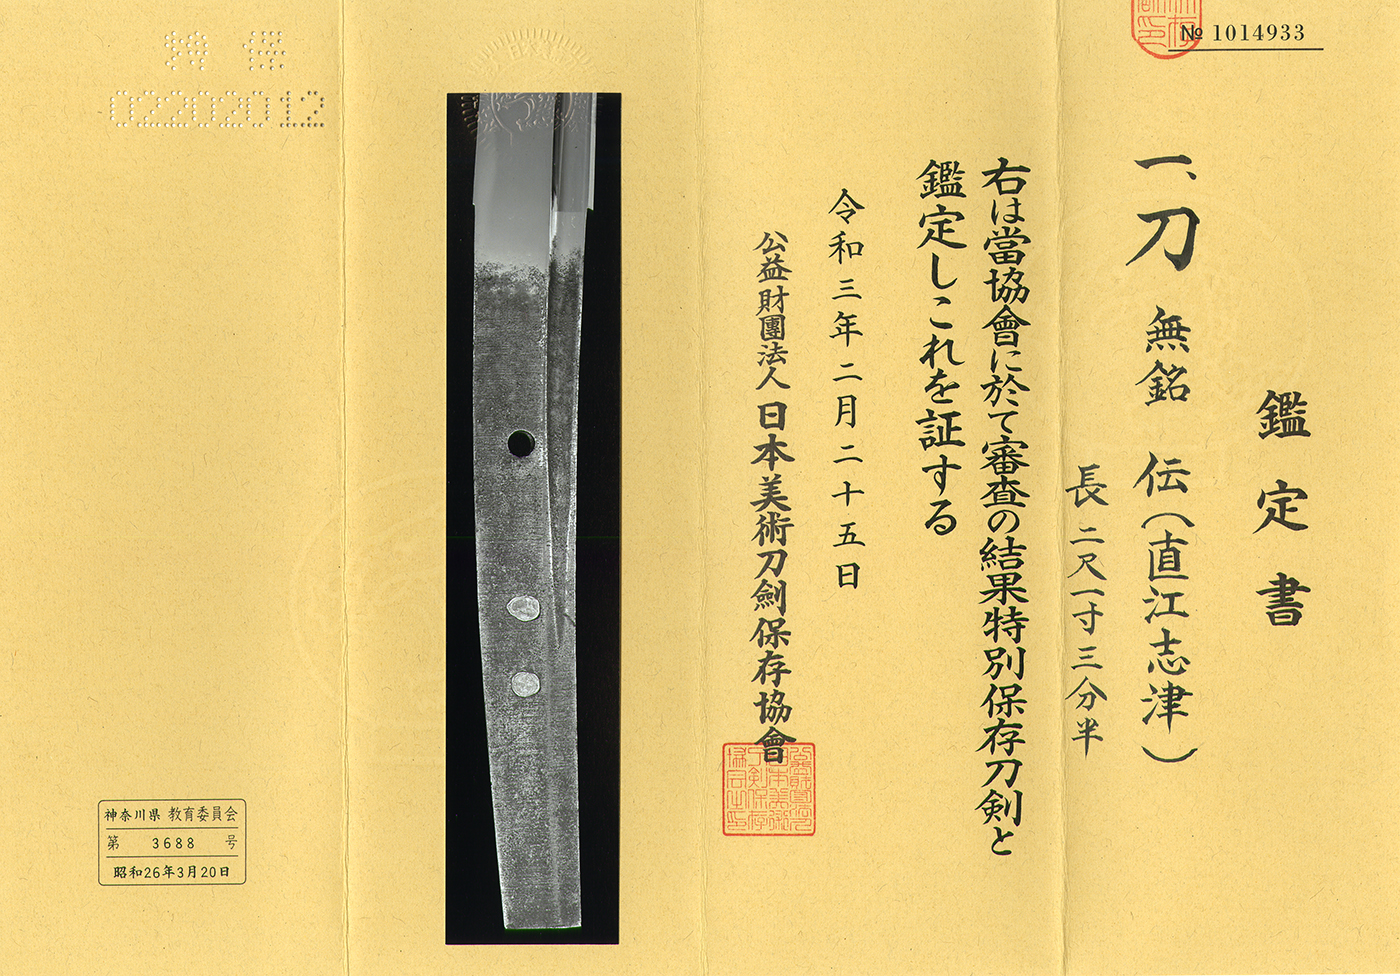 № 1014933
鑑定書
一、刀 無銘 伝(直江志津)
長二尺一寸三分半
右は當協會に於て審査の結果特別保存刀剣と
鑑定しこれを証する
令和三年二月二十五日
公益財團法人 日本美術刀劍保存協會
神奈川県 教育委員会
第 3688 号
昭和26年3月20日
特保
02202012